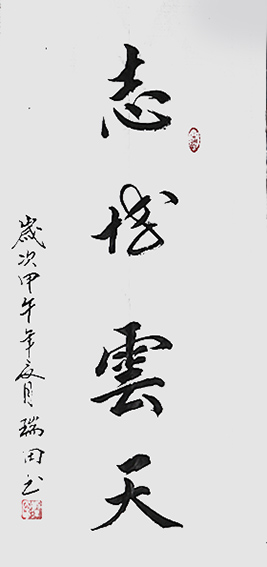 志博雲天
歲次甲午年夏月瑞田书